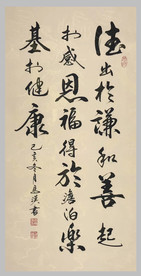 德出於謙和善起
於感恩福得於澹泊樂
基於健康
己亥冬月書